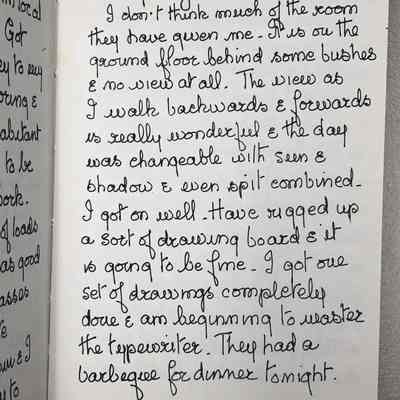 in local
Got
ey to buy
oring &
abitant
to be
work.
of loads
as good
asses
e
w & I
y to
I don't think much of the room
they have given me - It is on the
ground floor behind some bushes
& no view at all. The view as
I walk backwards & forwards
is really wonderful & the day
was changeable with sun &
shadow & even spit combined -
I got on well - Have rigged up
a sort of drawing board & it
is going to be fine - I got one
set of drawings completely
done & am beginning to master
the typewriter. They had a
barbeque for dinner tonight.